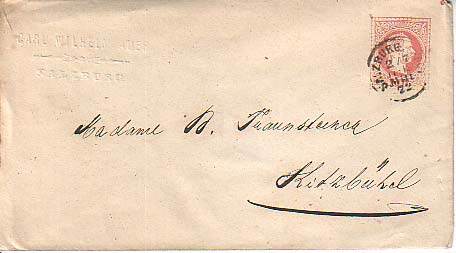 CARL WILHELM
SALZBURG
SALZBURG
22
Madame B. Traunsteiner
Kitzbühel